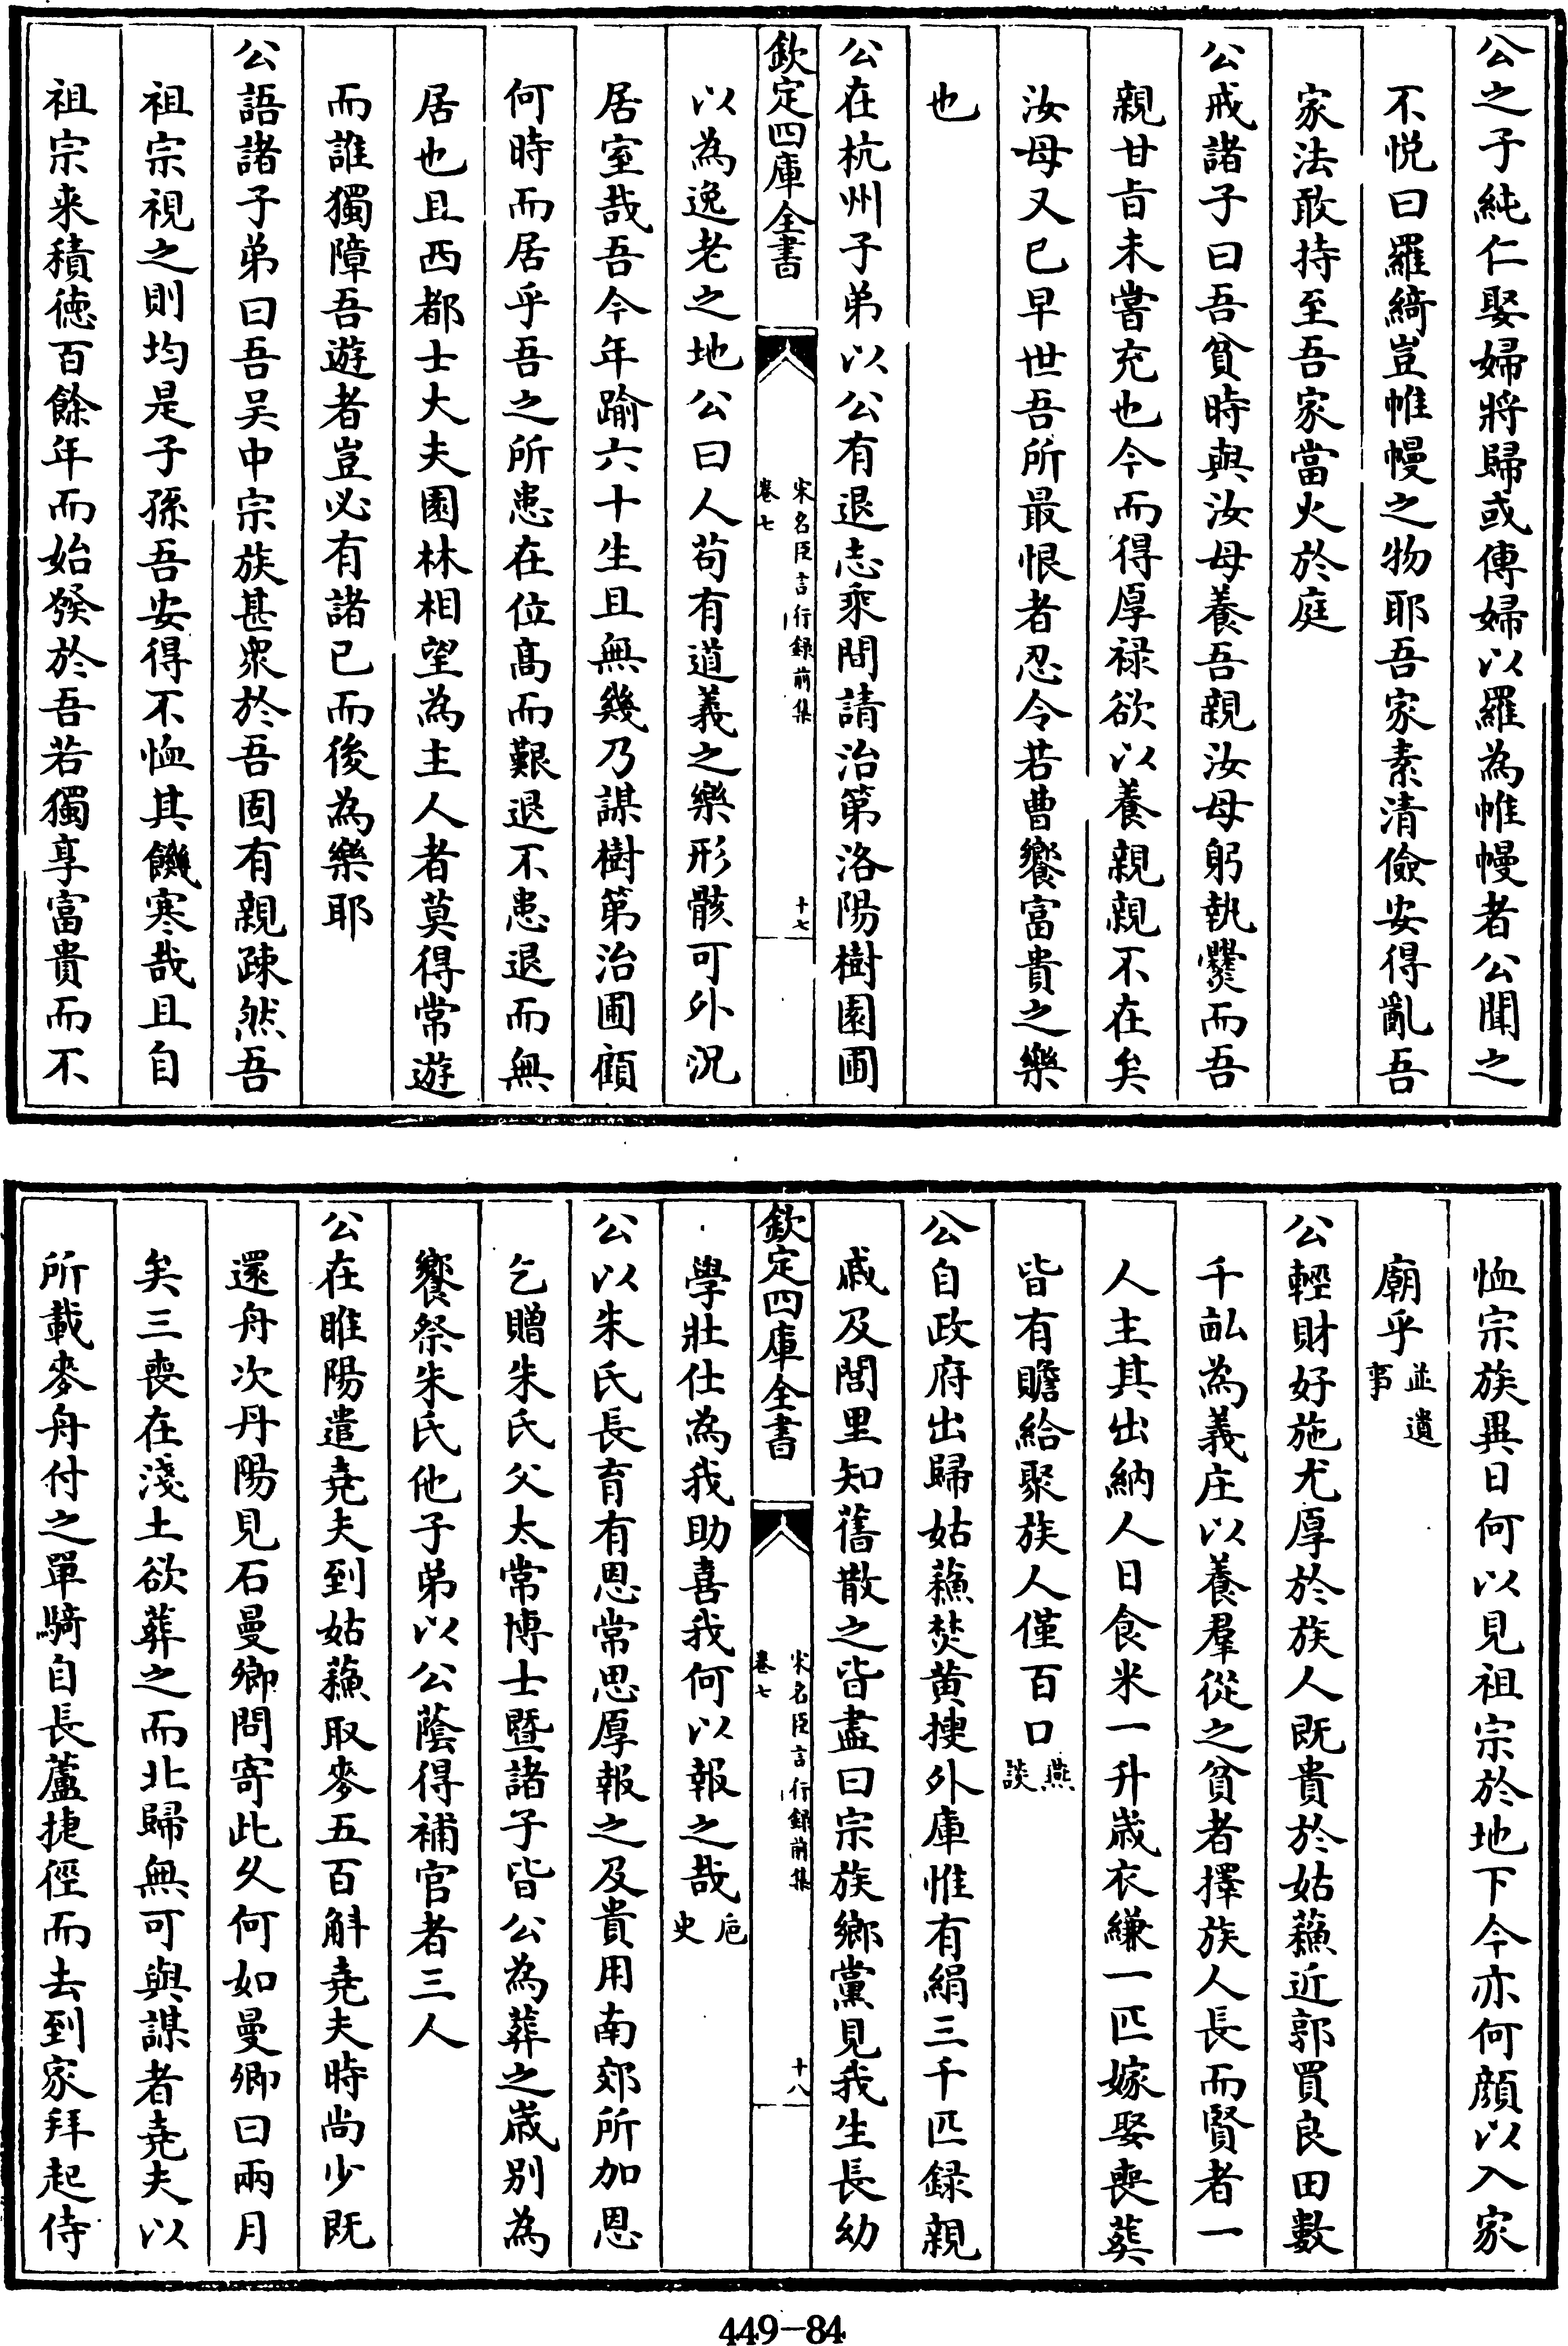 公之子純仁娶婦將歸或傳婦以羅為帷幔者公聞之
不悦曰羅綺豈帷幔之物耶吾家素清儉安得亂吾
家法敢持至吾家當火於庭
公戒諸子曰吾貧時與汝母養吾親汝母躬執爨而吾
親甘旨未嘗充也今而得厚禄欲以養親親不在矣
汝母又已早世吾所最恨者忍令若曹饗富貴之樂
也
公在杭州子弟以公有退志乘間請治第洛陽樹園圃
欽定四庫全書
宋名臣言行録前集
卷七
十七
以為逸老之地公曰人茍有道義之樂形骸可外況
居室哉吾今年踰六十生且無幾乃謀樹第治圃顧
何時而居乎吾之所患在位髙而艱退不患退而無
居也且西都士大夫園林相望為主人者莫得常遊
而誰獨障吾遊者豈必有諸已而後為樂耶
公語諸子弟曰吾吴中宗族甚衆於吾固有親疎然吾
祖宗視之則均是子孫吾安得不恤其饑寒哉且自
祖宗来積徳百餘年而始發於吾若獨享富貴而不
恤宗族異日何以見祖宗於地下今亦何顔以入家
廟乎並遺
事
公輕財好施尤厚於族人既貴於姑蘓近郭買良田數
千畝為義庄以養羣從之貧者擇族人長而賢者一
人主其出納人日食米一升嵗衣縑一匹嫁娶喪葬
皆有贍給聚族人僅百口燕
談
公自政府出歸姑蘓焚黄搜外庫惟有絹三千匹録親
戚及閭里知舊散之皆盡曰宗族鄉黨見我生長幼
欽定四庫全書
宋名臣言行録前集
卷七
十八
學壯仕為我助喜我何以報之哉巵
史
公以朱氏長育有恩常思厚報之及貴用南郊所加恩
乞贈朱氏父太常博士暨諸子皆公為葬之嵗別為
饗祭朱氏他子弟以公䕃得補官者三人
公在睢陽遣堯夫到姑蘓取麥五百斛堯夫時尚少既
還舟次丹陽見石曼卿問寄此乆何如曼卿曰兩月
矣三喪在淺土欲葬之而北歸無可與謀者堯夫以
所載麥舟付之單騎自長蘆捷徑而去到家拜起侍
449-84